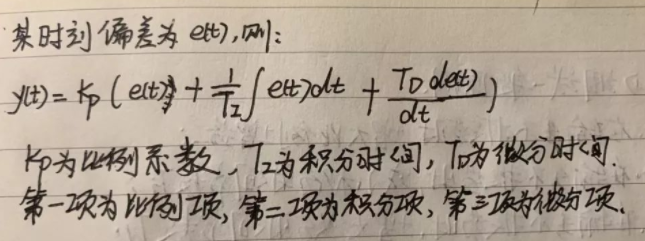 某时刻偏差为e(t),则:
y(t)=Kp(e(t)+1/TI∫e(t)dt+TD de(t)/dt)
Kp为比例系数,TI为积分时间,TD为微分时间.
第一项为比例项,第二项为积分项,第三项为微分项.